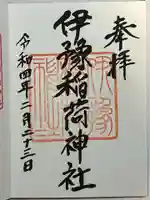 奉拝
伊豫稲荷神社
令和四年二月二十三日